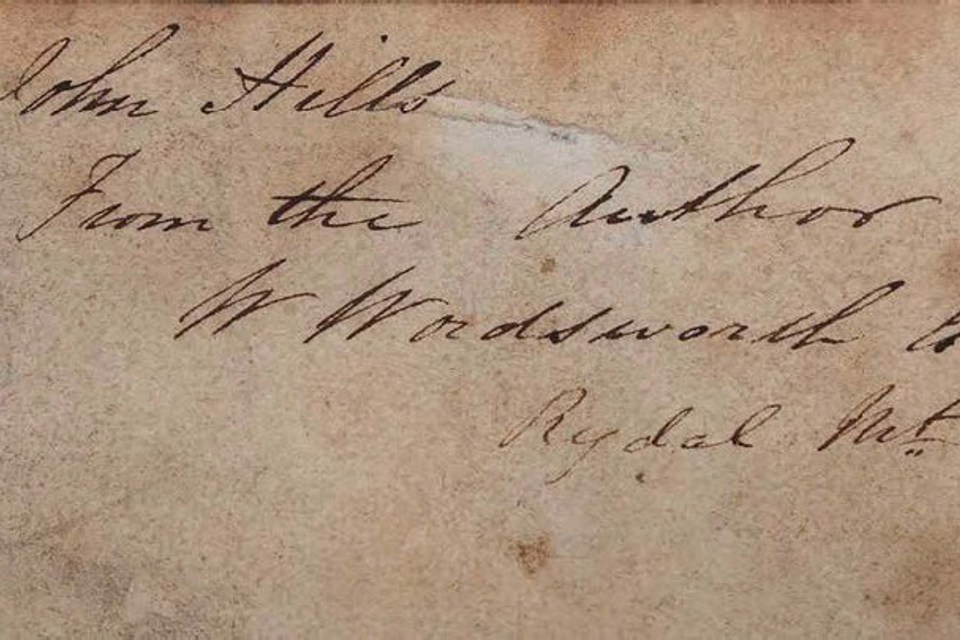 John Hills
From the Author
W Wordsworth
Rydal Mt